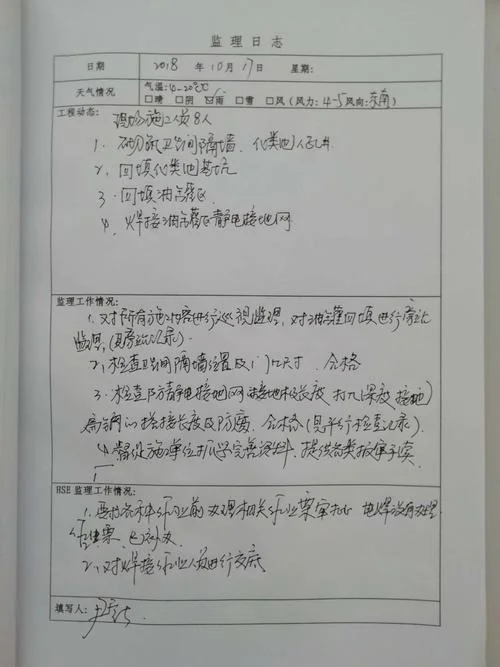 监理日志
日期 2018 年 10 月 17 日 星期:
天气情况 气温: 10-20℃
□晴 □阴 ☑雨 □雪 □风(风力: 4-5 风向: 东南)
工程动态:
现场施工人员8人
1. 砌筑卫生间隔墙、化粪池人孔井
2. 回填化粪池基坑
3. 回填油罐区
4. 焊接油罐区静电接地网
监理工作情况:
1. 对所有施工内容进行巡视监理, 对油罐回填进行旁站
监理(见旁站记录).
2. 检查卫生间隔墙位置及门口尺寸, 合格
3. 检查防静电接地网接地极长度, 打入深度, 接地
扁钢的搭接长度及防腐, 合格(见平行检查记录).
4. 督促施工单位抓紧完善资料, 提供各类报审手续.
HSE 监理工作情况:
1. 要求各种作业前办理相关作业票审批, 电焊没有办理
作业票, 已补办.
2. 对焊接作业人员进行交底
填写人: